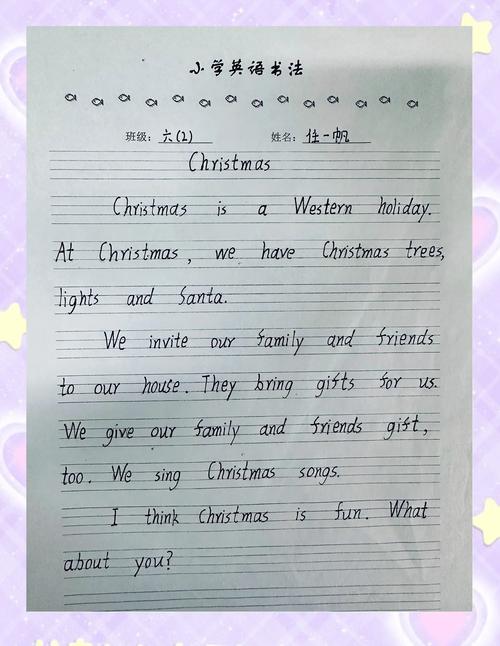 小学英语书法
班级: 六(2) 姓名: 任一帆
Christmas
Christmas is a Western holiday.
At Christmas, we have Christmas trees,
lights and Santa.
We invite our family and friends
to our house. They bring gifts for us.
We give our family and friends gift,
too. We sing Christmas songs.
I think Christmas is fun. What
about you?